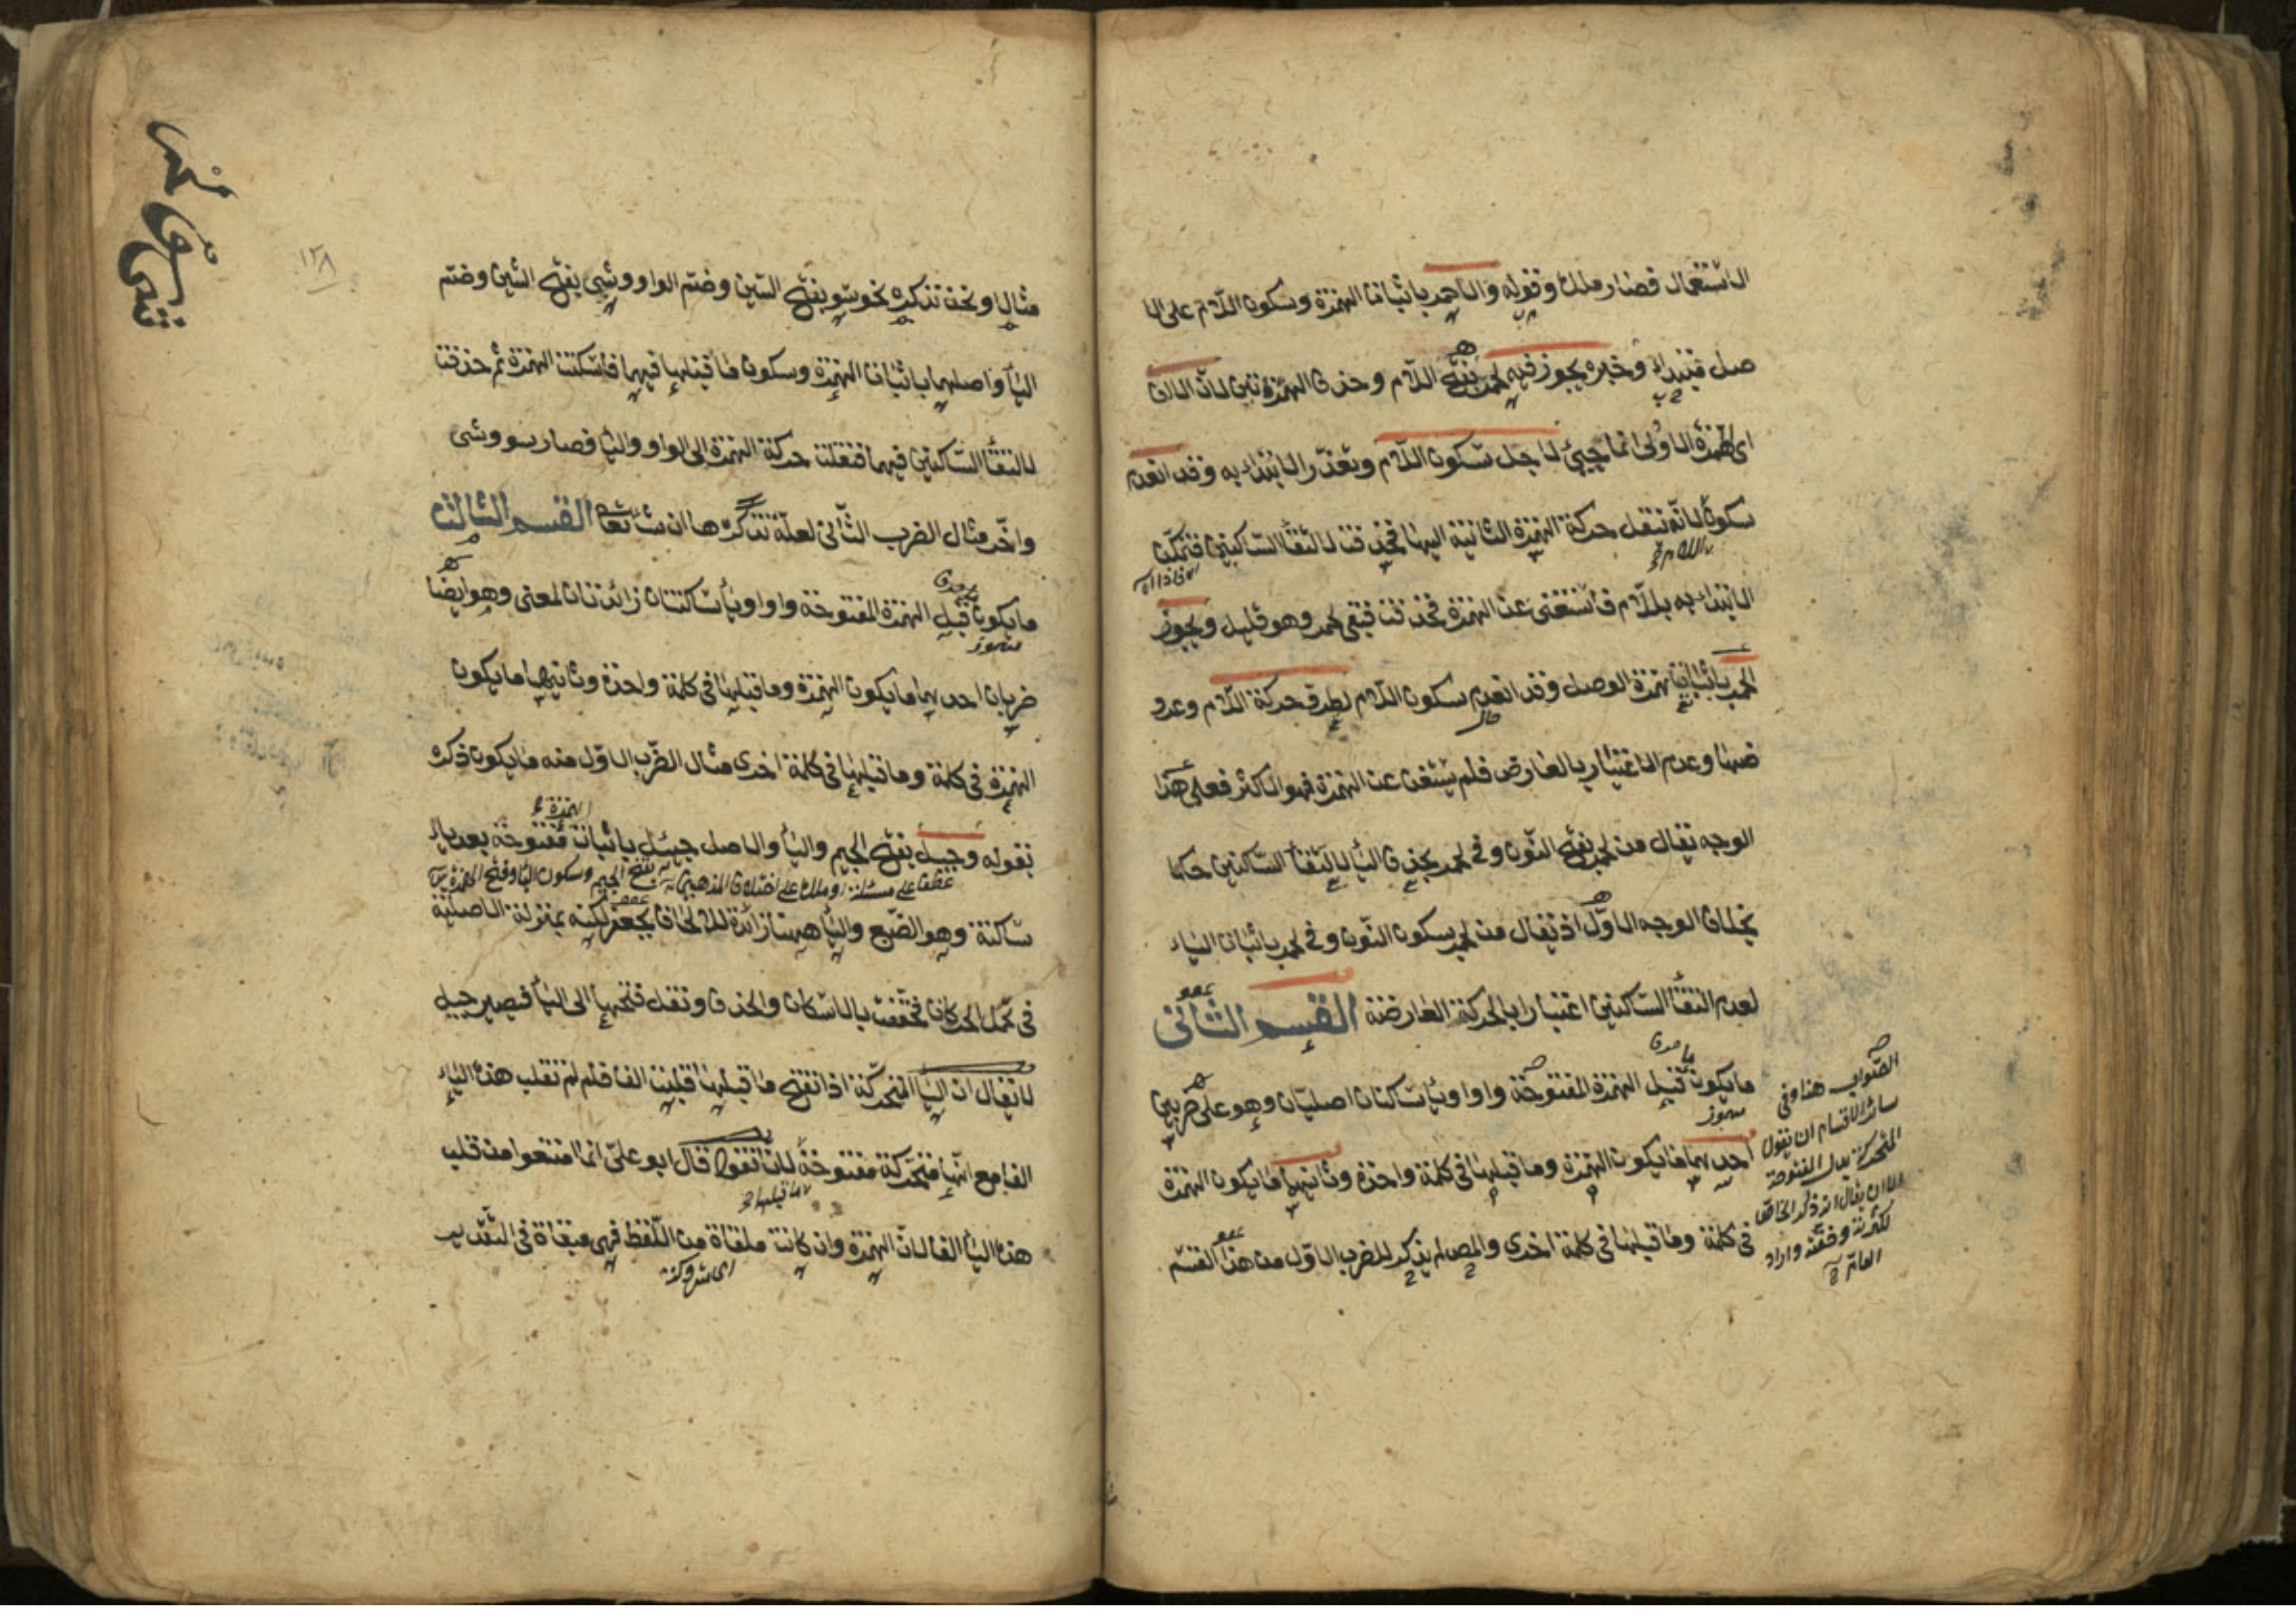 الاستعمال فصار ملك وقوله والاحمر باثبات الهمزة وسكون اللام على الا
صل مبتداء وخبره يجوز فيه لحمر بفتح اللام وحذف الهمزتين لان الالف
اى الهمزة الاولى انما جيئ لاجل سكون اللام وتعذر الابتداء به وقد انعدم
سكون لانه تنقل حركة الهمزة الثانية اليها فحذفت لالتقأ الساكنين فتمكن
الابتداء به بللام فاستغنى عن الهمزة فحذفت فبقى لحمر وهو قليل ويجوز
الحمر باثبات همزة الوصل وقد انعدم سكون اللام لطرو حركة اللام وعرو
ضها وعدم الاعتبار بالعارض فلم يستغن عن الهمزة فهو الاكثر فعلى هذا
الوجه يقال من لحمر بفتح النون وفى لحمر بحذف اليأ لالتقأ الساكنين حكما
بخلاف الوجه الاول اذ يقال من لحمر بسكون النون وفى لحمر باثبات الياء
لعدم التقأ الساكنين اعتبارا بالحركة العارضة القسم الثانى
ما يكون قبل الهمزة المفتوحة واوا ويأ ساكنان اصليان وهو على ضربين
احديهما ما يكون الهمزة وما قبلها فى كلمة واحدة وثانيهما ما يكون الهمزة
فى كلمة وما قبلها فى كلمة اخرى والمص لم يذكر للضرب الاول من هذا القسم
الصواب هنا وفى
سائر الاقسام ان يقول
المتحركة بدل المفتوحة
الا ان يقال انه ذكر الخاص
لكثرته وخفته واراد
العام
١٢٨
مثالا ونحن نذكره نحو سو بفتح السين وضم الواو وشى بفتح الشين وضم
اليأ واصلهما باثبات الهمزة وسكون ما قبلها فيهما فاسكنت الهمزة ثم حذفت
لالتقأ الساكنين فيهما فنقلت حركة الهمزة الى الواو واليأ فصار سو وشى
واخر مثال الضرب الثانى لعلة نذكرها ان شأ تعا القسم الثالث
ما يكون قبل الهمزة المفتوحة واوا ويأ ساكنتان زائدتان لمعنى وهو ايضا
ضربان احديهما ما يكون الهمزة وما قبلها فى كلمة واحدة وثانيهما ما يكون
الهمزة فى كلمة وما قبلها فى كلمة اخرى مثال الضرب الاول منه ما يكون ذكره
بقوله وجيل بفتح الجيم واليأ والاصل جيئل باثبات مفتوحة بعد يا
عطف على مسئلة او ملك على اختلاف المذهبين بفتح الجيم وسكون اليأ وفتح الهمزة
ساكنة وهو الضبع واليأ ههنا زائدة للالحاق بجعفر لكنه بمنزلة الاصلية
فى تحمل الحركات فخففت بالاسكان والحذف ونقل فتحها الى اليأ فيصير جيل
لا يقال ان اليأ المتحركة اذا انفتح ما قبلها قلبت الفا فلم لم تقلب هذه الياء
الفا مع انها متحركة مفتوحة لانا نقول قال ابو على انما امتنعوا من قلب
ما قبلها
هذه اليأ الفا لان الهمزة وان كانت ملقاة من اللفظ فهى مبقاة فى التقدير
اى متروكة